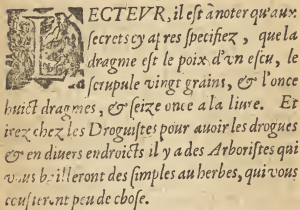 LECTEVR, il est à noter qu'aux
secrets cy apres specifiez, que la
dragme est le poix d'vn escu, le
scrupule vingt grains, & l'once
huict dragmes, & seize once a la liure. Et
irez chez les Droguistes pour auoir les drogues
& en diuers endroicts il y a des Arboristes qui
vous bailleront des simples au herbes, qui vous
cousteront peu de chose.